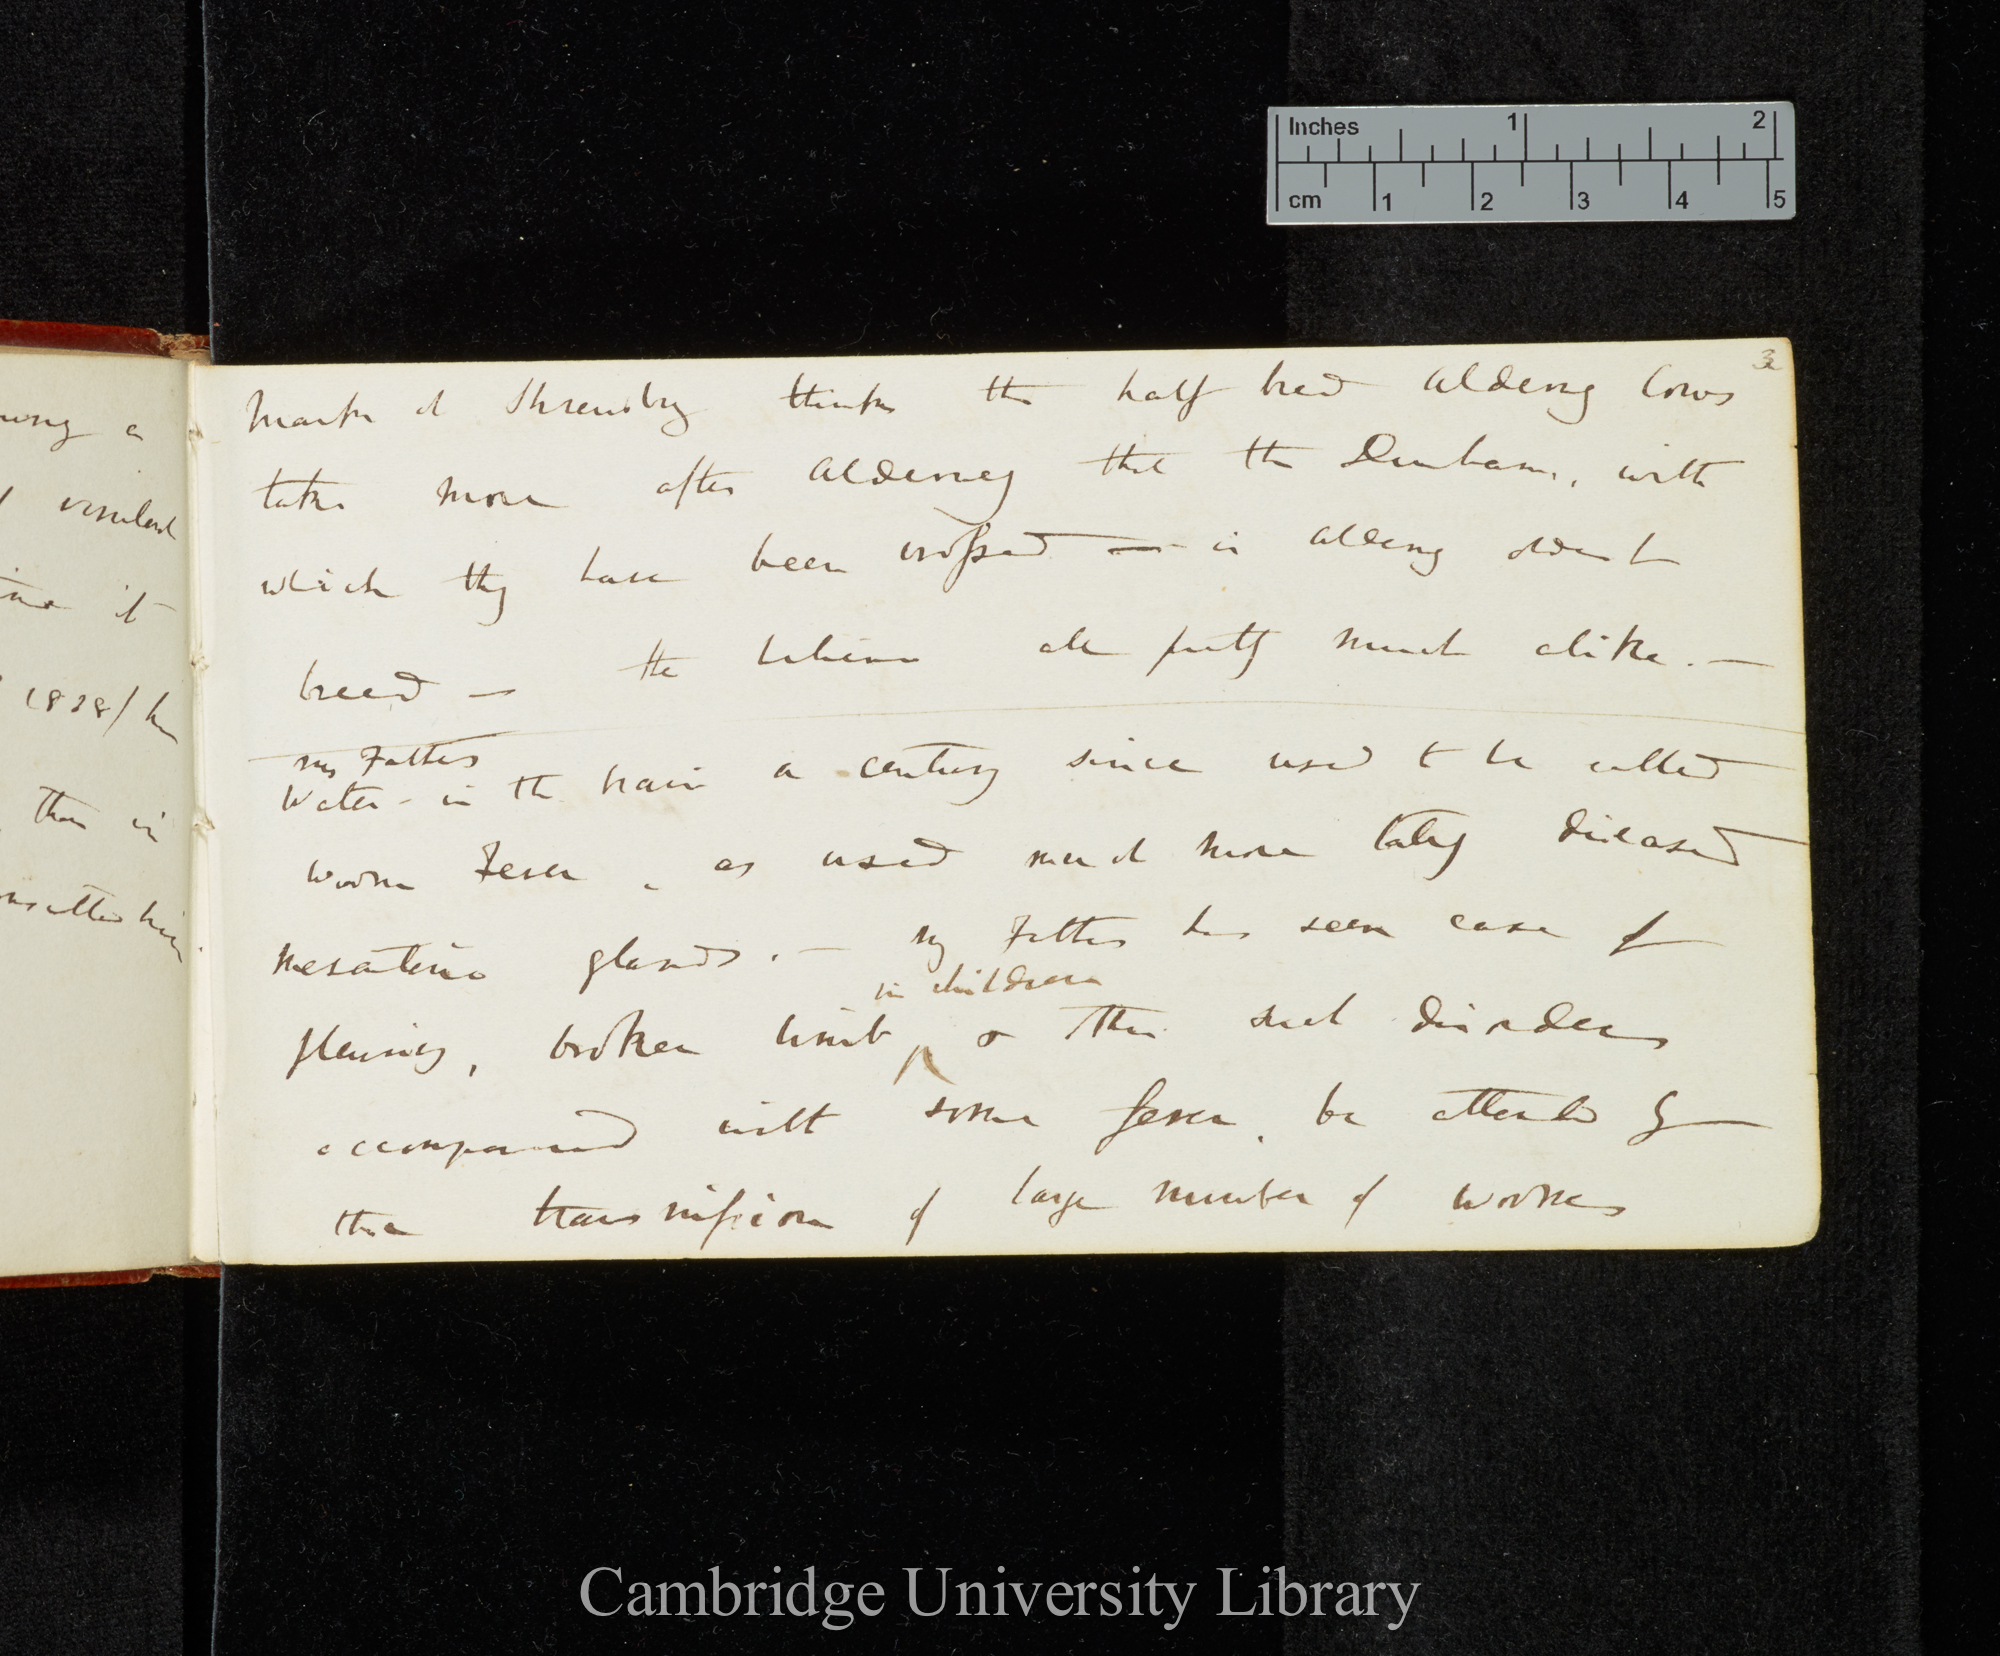 wing a
virulent
it
1838/ he
than in
Inches 1 2
cm 1 2 3 4 5
3
Mark at Shrewsbury thinks the half bred Alderney Cows
take more after Alderney that the Durham, with
which they have been crossed — is Alderney oldest
breed — the tribes are pretty much alike. —
My Father
Water in the brain a century since used to be called
worm Fever, as used much more lately diseased
mesenteric glands. — My Father has seen case of
in children
pleurisy, broken limb ‸ & other such disorders
accompanied with some fever, be attended by
the transmission of large number of worms
Cambridge University Library